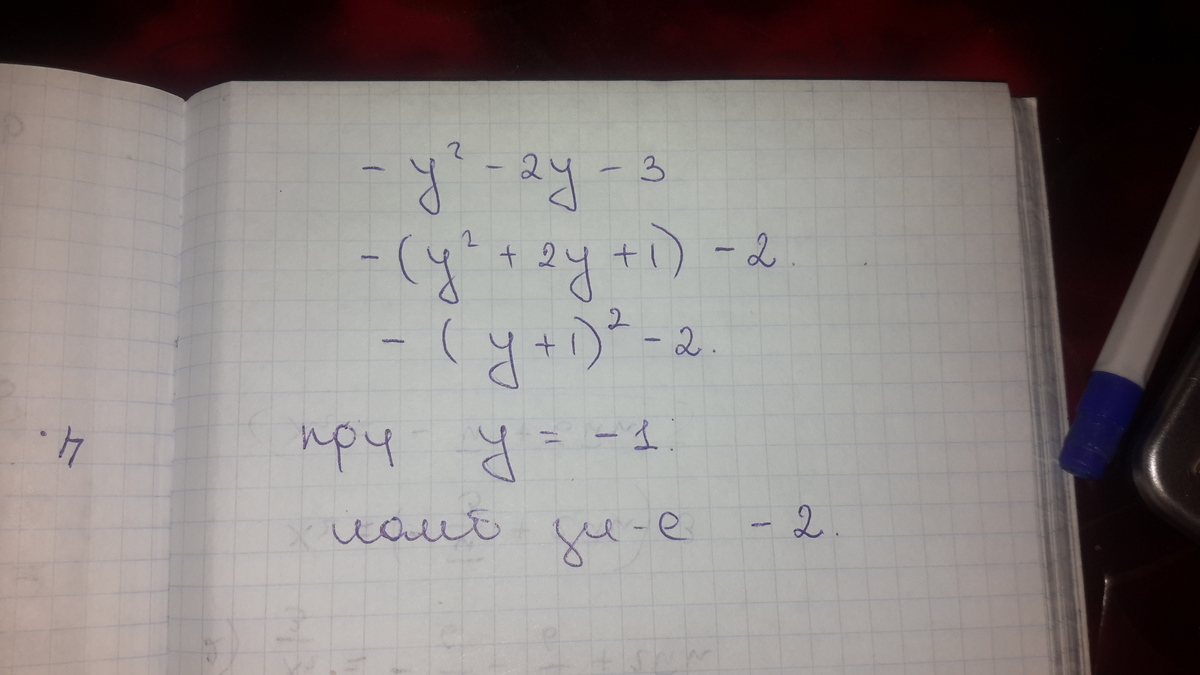 - y² - 2y - 3
- (y² + 2y + 1) - 2.
- (y + 1)² - 2.
при y = -1.
зн-е - 2.
4.